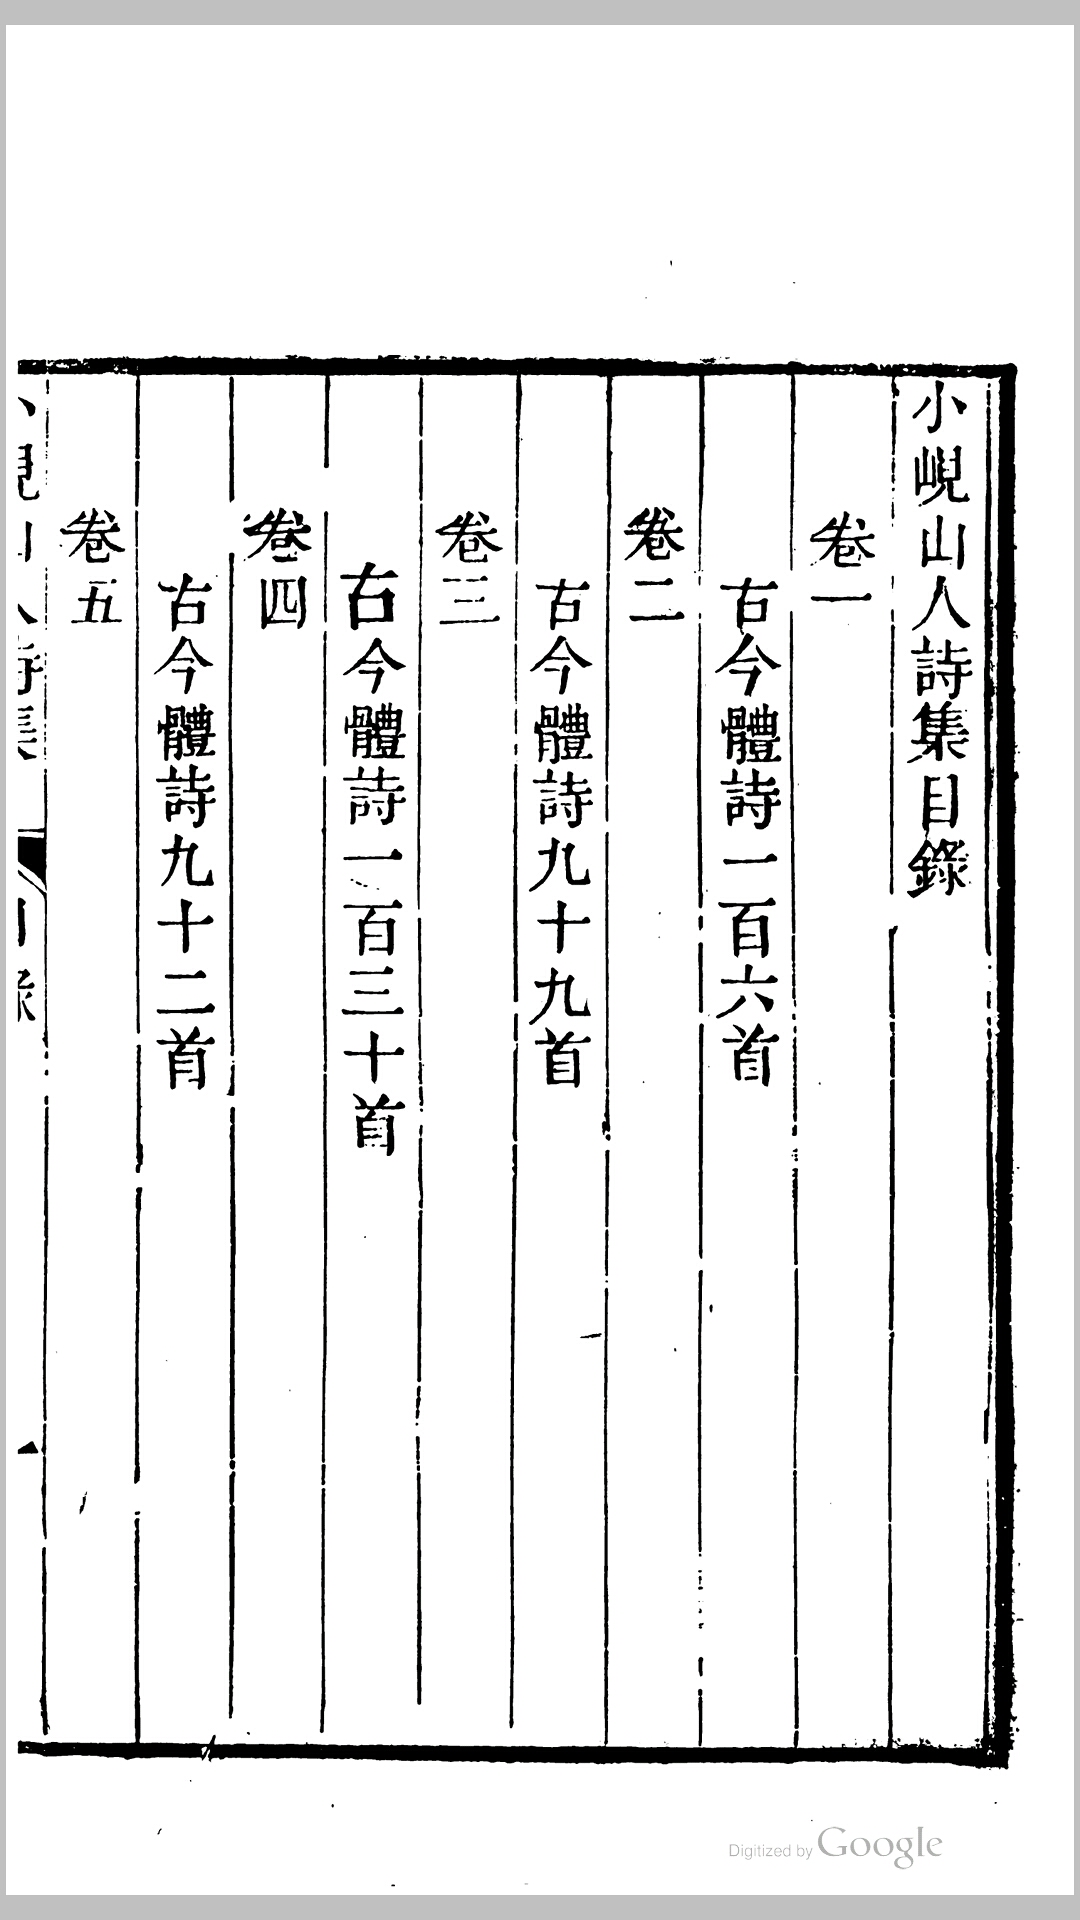 小峴山人詩集目錄
卷一
古今體詩一百六首
卷二
古今體詩九十九首
卷三
古今體詩一百三十首
卷四
古今體詩九十二首
卷五
小峴山人詩集 目錄
Digitized by Google